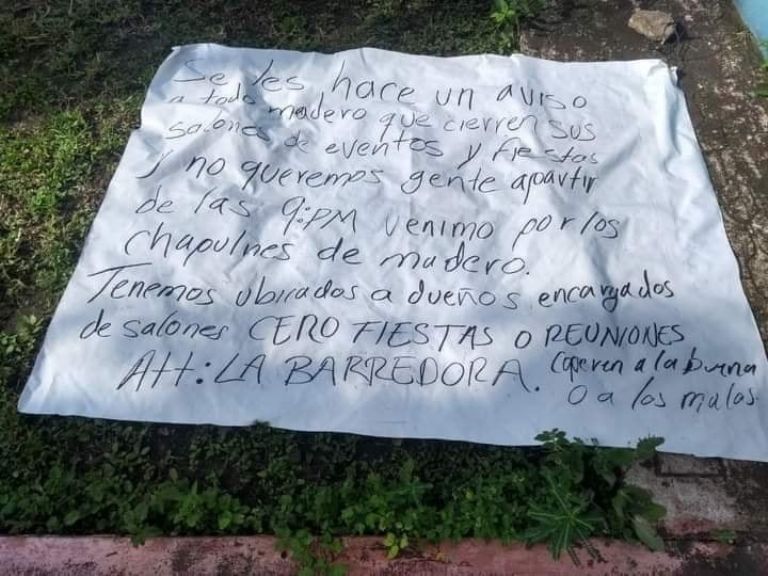 Se les hace un aviso
a todo madero que cierren sus
salones de eventos y fiestas
y no queremos gente apartir
de las 9:PM venimo por los
chapulnes de madero.
Tenemos ubicados a dueños encargados
de salones CERO FIESTAS O REUNIONES
Att: LA BARREDORA. Coperen a la buena
O a las malas